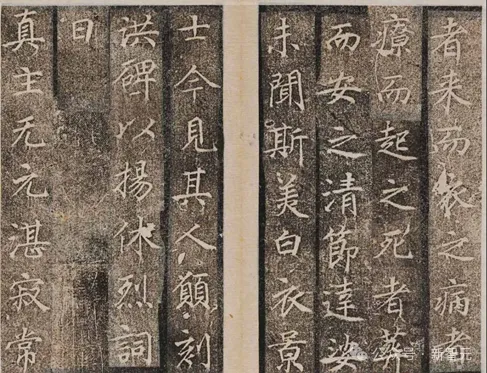 者来而衣之病者
療而起之死者葬
而安之清節達娑
未聞斯美白衣景
士今見其人願刻
洪碑以揚休烈詞
曰
真主无元湛寂常
公众号·新皇元